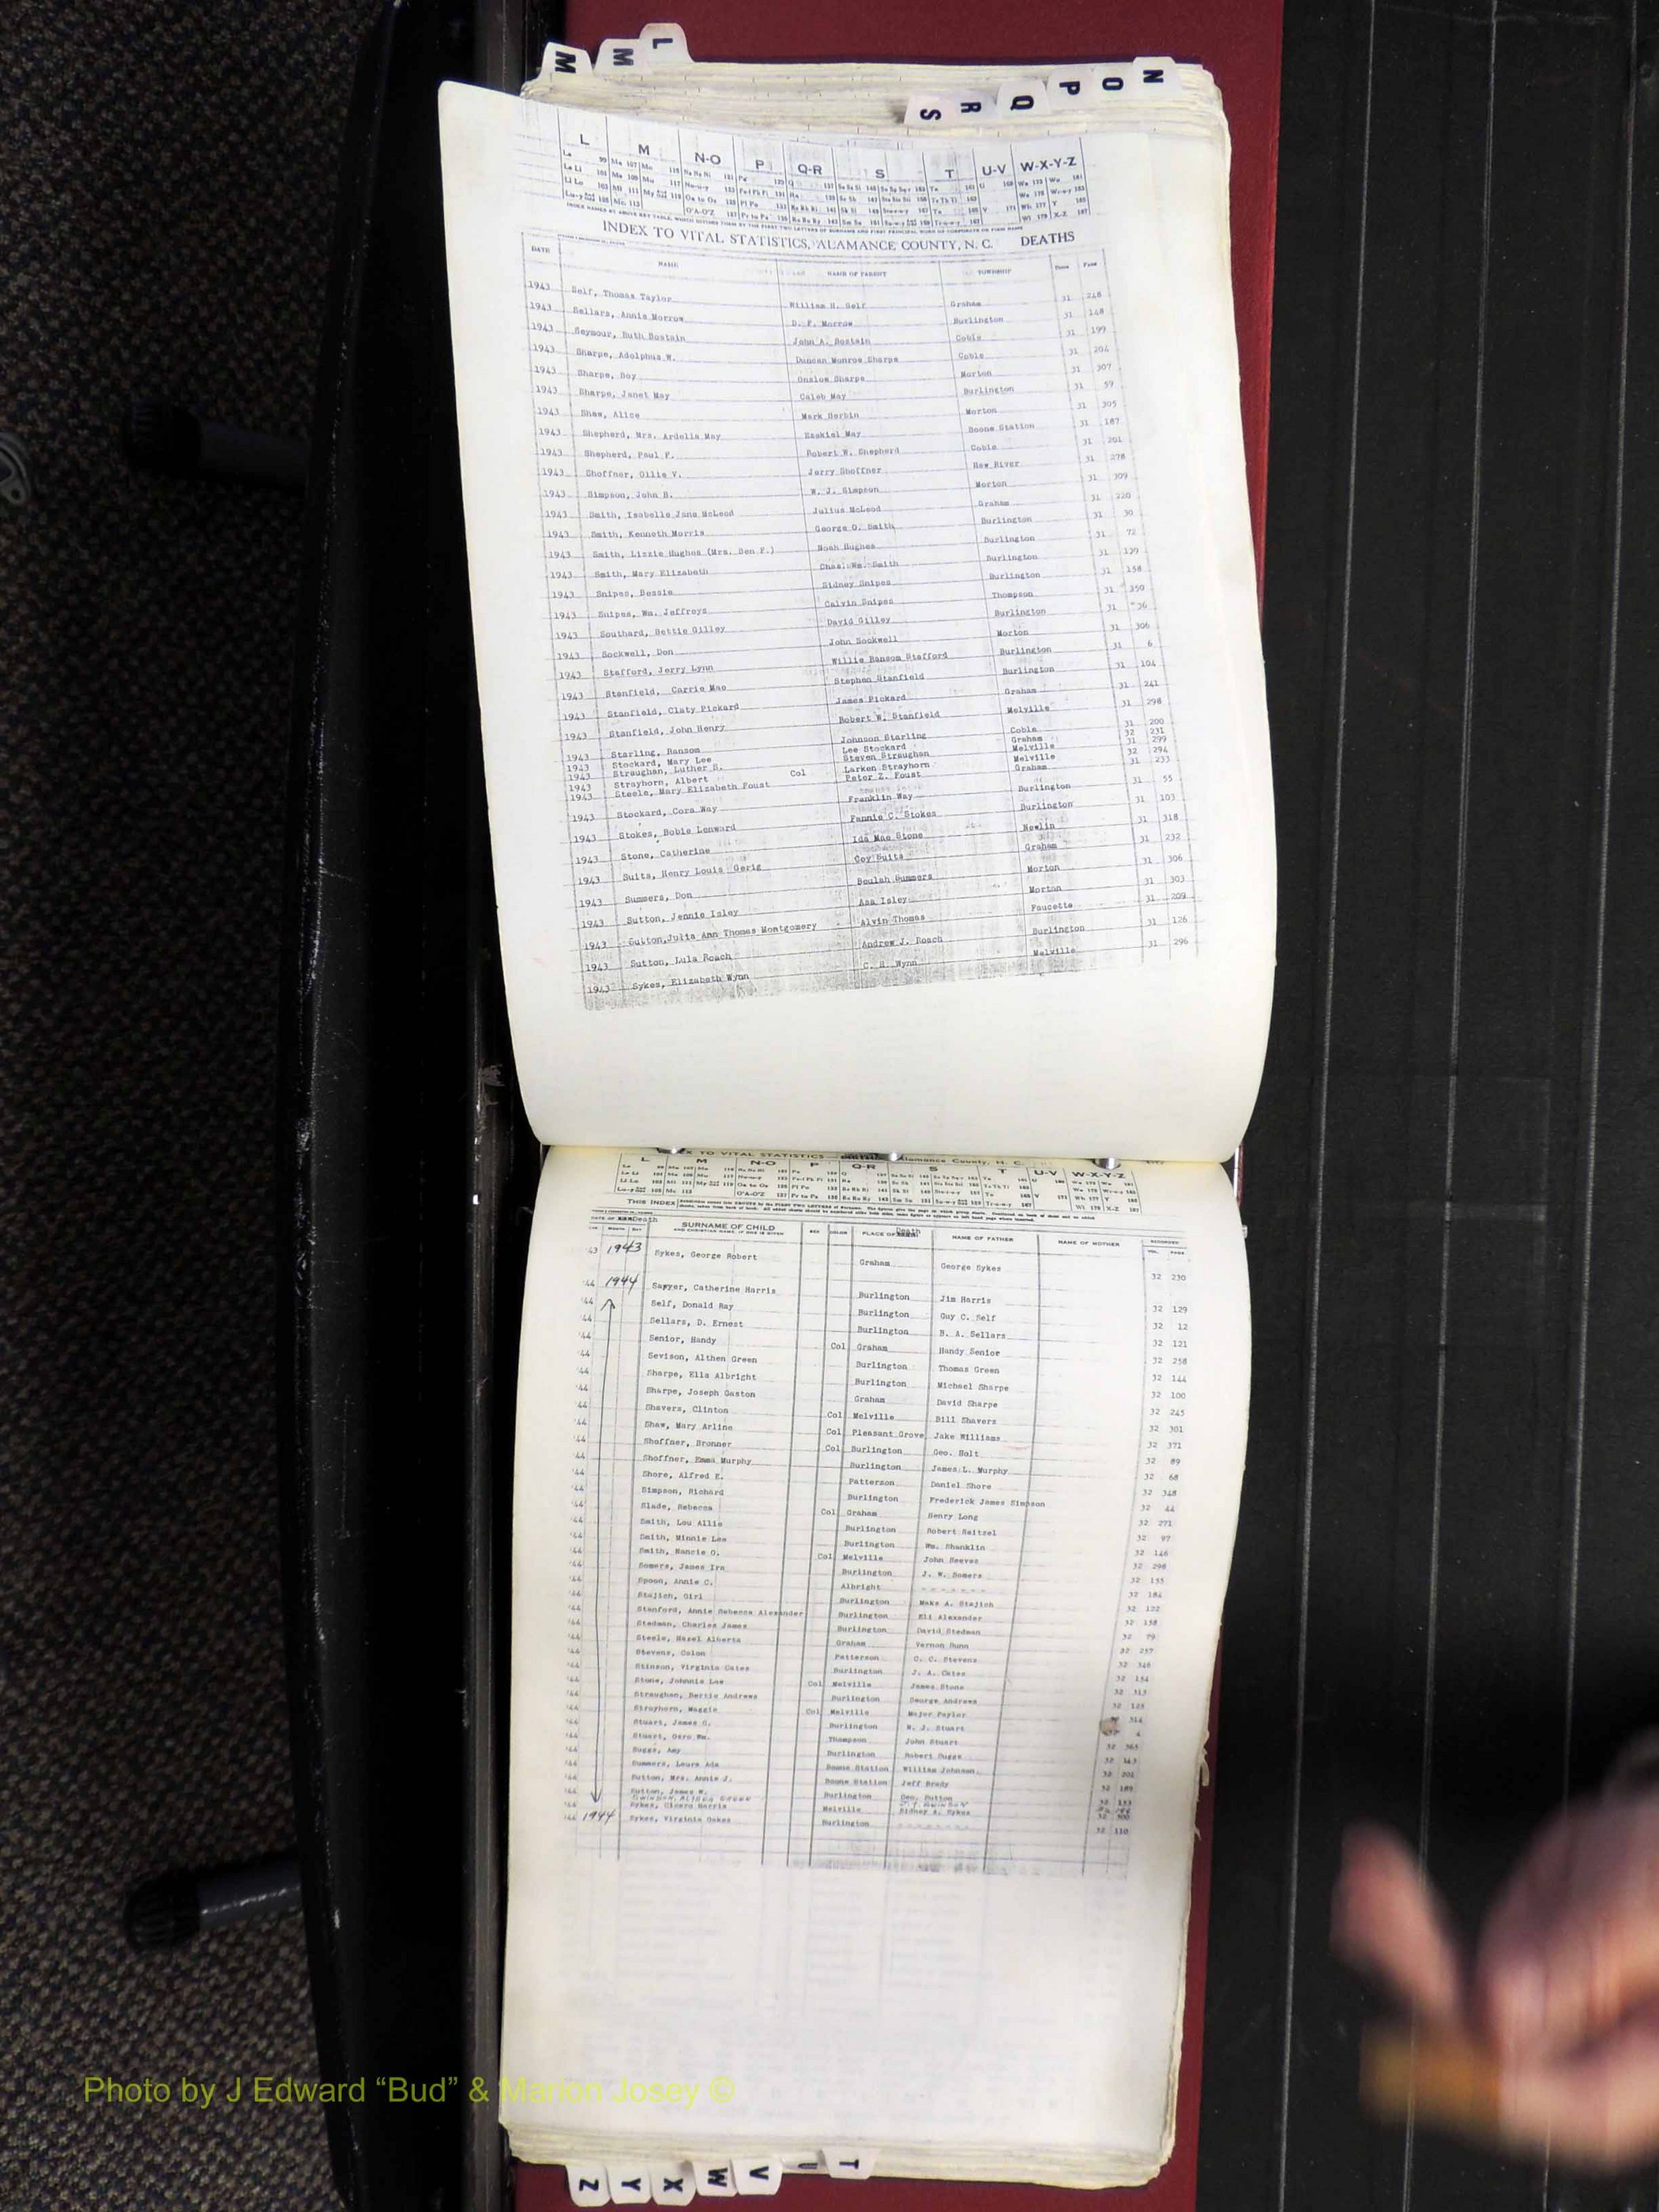 L
M
M
N
O
P
Q
R
S
L M N-O P Q-R S T U-V W-X-Y-Z
INDEX TO VITAL STATISTICS, ALAMANCE COUNTY, N. C. DEATHS
DATE NAME NAME OF PARENT TOWNSHIP Page
1943 Self, Thomas Taylor William H. Self Graham 31 248
1943 Sellars, Annie Morrow D. F. Morrow Burlington 31 148
1943 Seymour, Ruth Bostain John A. Bostain Coble 31 199
1943 Sharpe, Adolphus W. Duncan Monroe Sharpe Coble 31 204
1943 Sharpe, Boy Onslow Sharpe Morton 31 307
1943 Sharpe, Janet May Caleb May Burlington 31 59
1943 Shaw, Alice Mark Herbin Morton 31 305
1943 Shepherd, Mrs. Ardelia May Ezekiel May Boone Station 31 187
1943 Shepherd, Paul F. Robert W. Shepherd Coble 31 201
1943 Shoffner, Ollie V. Jerry Shoffner Haw River 31 278
1943 Simpson, John B. W. J. Simpson Morton 31 309
1943 Smith, Isabelle Jane McLeod Julius McLeod Graham 31 220
1943 Smith, Kenneth Morris George O. Smith Burlington 31 30
1943 Smith, Lizzie Hughes (Mrs. Ben F.) Noah Hughes Burlington 31 72
1943 Smith, Mary Elizabeth Chas. Wm. Smith Burlington 31 139
1943 Snipes, Bessie Sidney Snipes Burlington 31 158
1943 Snipes, Wm. Jeffreys Calvin Snipes Thompson 31 350
1943 Southard, Bettie Gilley David Gilley Burlington 31 36
1943 Sockwell, Don John Sockwell Morton 31 306
1943 Stafford, Jerry Lynn Willie Ransom Stafford Burlington 31 6
1943 Stanfield, Carrie Mae Stephen Stanfield Burlington 31 104
1943 Stanfield, Claty Pickard James Pickard Graham 31 241
1943 Stanfield, John Henry Robert W. Stanfield Melville 31 298
1943 Starling, Ransom Johnson Starling Coble 31 200
1943 Stockard, Mary Lee Lee Stockard Graham 32 231
1943 Straughan, Luther S. Steven Straughan Melville 31 299
1943 Strayhorn, Albert Col Larken Strayhorn Melville 32 294
1943 Steele, Mary Elizabeth Foust Peter Z. Foust Graham 31 233
1943 Stockard, Cora Way Franklin Way Burlington 31 55
1943 Stokes, Bobie Lenward Fannie C. Stokes Burlington 31 103
1943 Stone, Catherine Ida Mae Stone Newlin 31 318
1943 Suits, Henry Louis Gerig Coy Suits Graham 31 232
1943 Summers, Don Beulah Summers Morton 31 306
1943 Sutton, Jennie Isley Asa Isley Morton 31 303
1943 Sutton, Julia Ann Thomas Montgomery Alvin Thomas Faucette 31 209
1943 Sutton, Lula Roach Andrew J. Roach Burlington 31 126
1943 Sykes, Elizabeth Wynn C. H. Wynn Melville 31 296
INDEX TO VITAL STATISTICS Alamance County, N. C.
L M N-O P Q-R S T U-V W-X-Y-Z
DATE OF Death SURNAME OF CHILD SEX COLOR PLACE OF Death NAME OF FATHER NAME OF MOTHER RECORDED
VOL. PAGE
43 1943 Sykes, George Robert Graham George Sykes 32 230
44 1944 Sawyer, Catherine Harris Burlington Jim Harris 32 129
44 Self, Donald Ray Burlington Guy C. Self 32 12
44 Sellars, D. Ernest Burlington B. A. Sellars 32 121
44 Senior, Handy Col Graham Handy Senior 32 258
44 Sevison, Althen Green Burlington Thomas Green 32 144
44 Sharpe, Ella Albright Burlington Michael Sharpe 32 100
44 Sharpe, Joseph Gaston Graham David Sharpe 32 245
44 Shavers, Clinton Col Melville Bill Shavers 32 301
44 Shaw, Mary Arline Col Pleasant Grove Jake Williams 32 371
44 Shoffner, Bronner Col Burlington Geo. Holt 32 89
44 Shoffner, Emma Murphy Burlington James L. Murphy 32 68
44 Shore, Alfred E. Patterson Daniel Shore 32 348
44 Simpson, Richard Burlington Frederick James Simpson 32 44
44 Slade, Rebecca Col Graham Henry Long 32 271
44 Smith, Lou Allie Burlington Robert Neitzel 32 97
44 Smith, Minnie Lee Burlington Wm. Shanklin 32 146
44 Smith, Nancie G. Col Melville John Reeves 32 298
44 Somers, James Ira Burlington J. W. Somers 32 155
44 Spoon, Annie C. Albright 32 184
44 Stajich, Girl Burlington Make A. Stajich 32 122
44 Stanford, Annie Rebecca Alexander Burlington Eli Alexander 32 158
44 Stedman, Charles James Burlington David Stedman 32 79
44 Steele, Hazel Alberta Graham Vernon Nunn 32 257
44 Stevens, Colon Patterson C. C. Stevens 32 346
44 Stinson, Virginia Oates Burlington J. A. Oates 32 154
44 Stone, Johnnie Lee Col Melville James Stone 32 313
44 Straughan, Bertie Andrews Burlington George Andrews 32 125
44 Strayhorn, Maggie Col Melville Major Paylor 314
44 Stuart, James G. Burlington W. J. Stuart 32 4
44 Stuart, Osro Wm. Thompson John Stuart 32 365
44 Suggs, Amy Burlington Robert Suggs 32 143
44 Summers, Laura Ada Boone Station William Johnson 32 201
44 Sutton, Mrs. Annie J. Boone Station Jeff Brady 32 189
44 Sutton, James W. Burlington Geo. Sutton 32 133
44 Sykes, Cicero Harris Melville Sidney A. Sykes 32 300
44 1944 Sykes, Virginia Oakes Burlington 32 110
Photo by J Edward “Bud” & Marion Josey ©
Z
Y
X
W
V
U
T